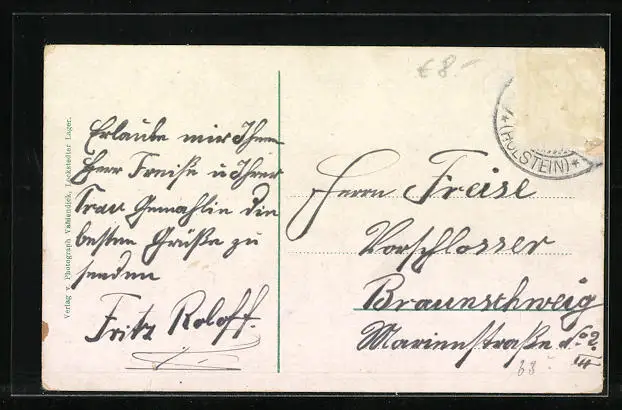 Verlag v. Photograph Vahlendick, Lockstedter Lager.
Erlaube mir Ihnen
Herr Freise u Ihrer
Frau Gemahlin die
besten Grüße zu
senden
Fritz Roloff.
€ 8.-
*(HOLSTEIN)*
Herrn Freise
Vorschlosser
Braunschweig
Marienstraße No 2.
III